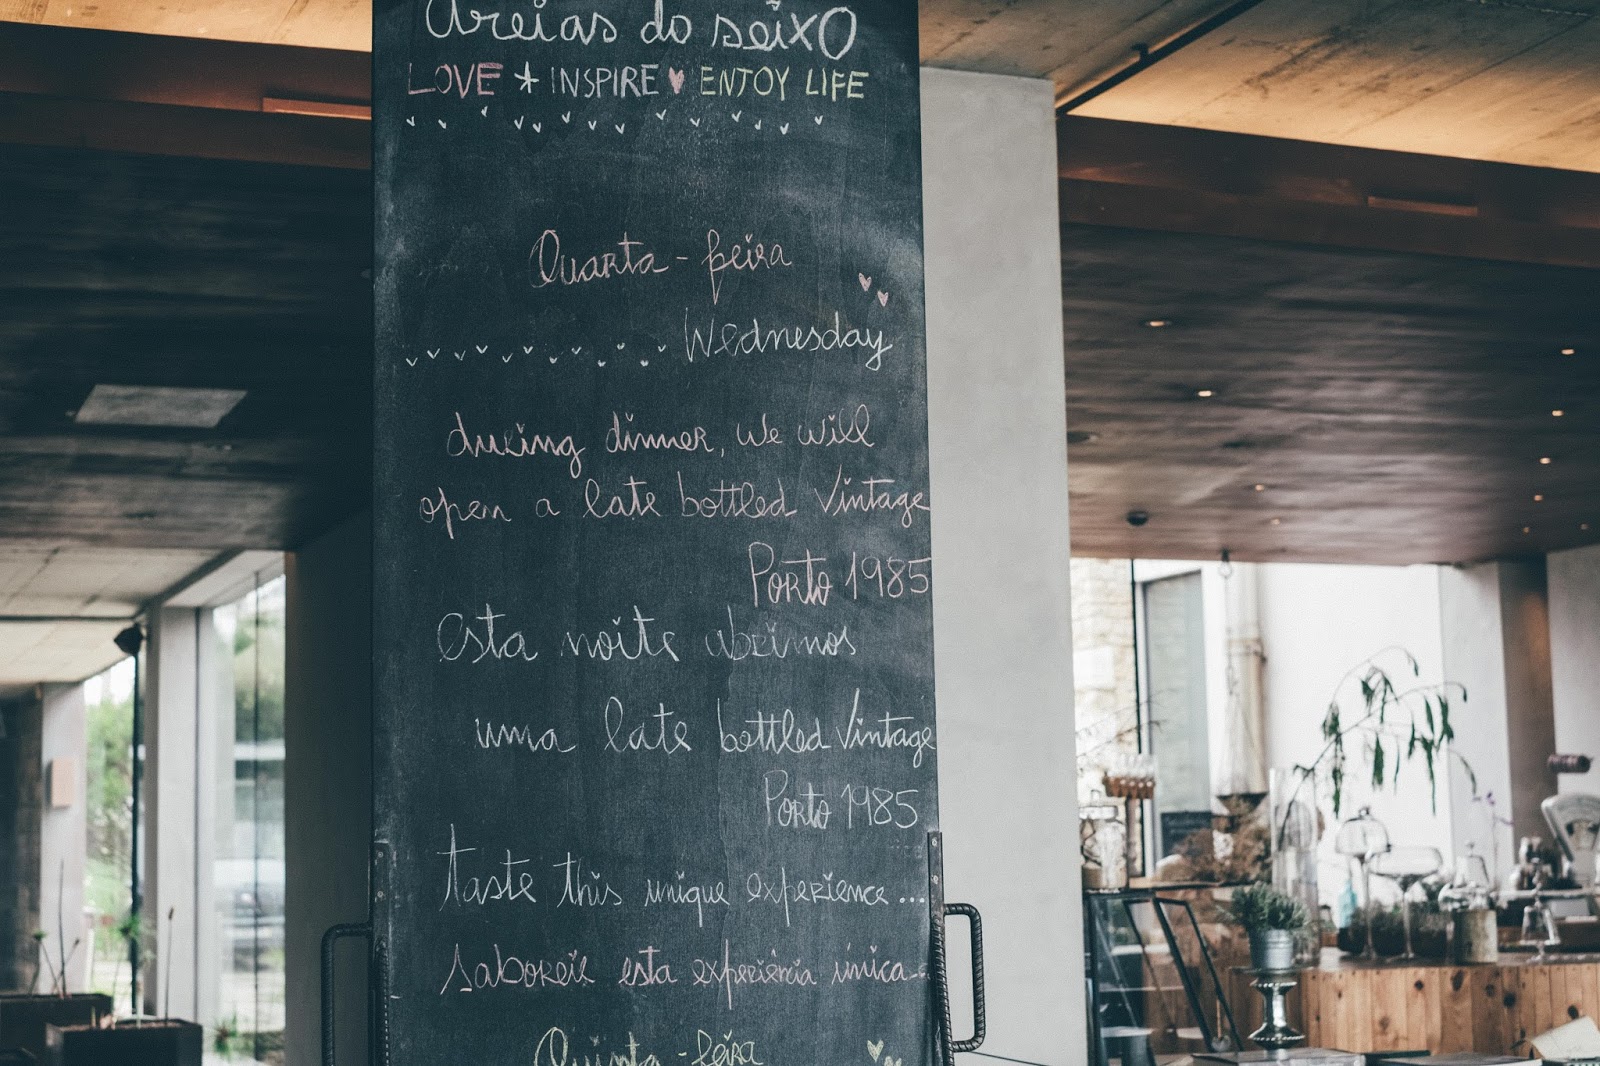 Areias do seixo
LOVE * INSPIRE ♥ ENJOY LIFE
Quarta-feira
Wednesday
during dinner, we will
open a late bottled Vintage
Porto 1985
esta noite abrimos
uma late bottled Vintage
Porto 1985
taste this unique experience...
saboreie esta experiência única...
Quinta-feira